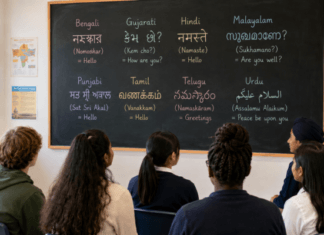 Bengali
নমস্কার
(Nomoshkar)
= Hello
Gujarati
કેમ છો?
(Kem cho?)
= How are you?
Hindi
नमस्ते
(Namaste)
= Hello
Malayalam
സുഖമാണോ?
(Sukhamano?)
= Are you well?
Punjabi
ਸਤ ਸ੍ਰੀ ਅਕਾਲ
(Sat Sri Akal)
= Hello
Tamil
வணக்கம்
(Vanakkam)
= Hello
Telugu
నమస్కారం
(Namaskāram)
= Greetings
Urdu
السلام علیکم
(Assalamu Alaikum)
= Peace be upon you